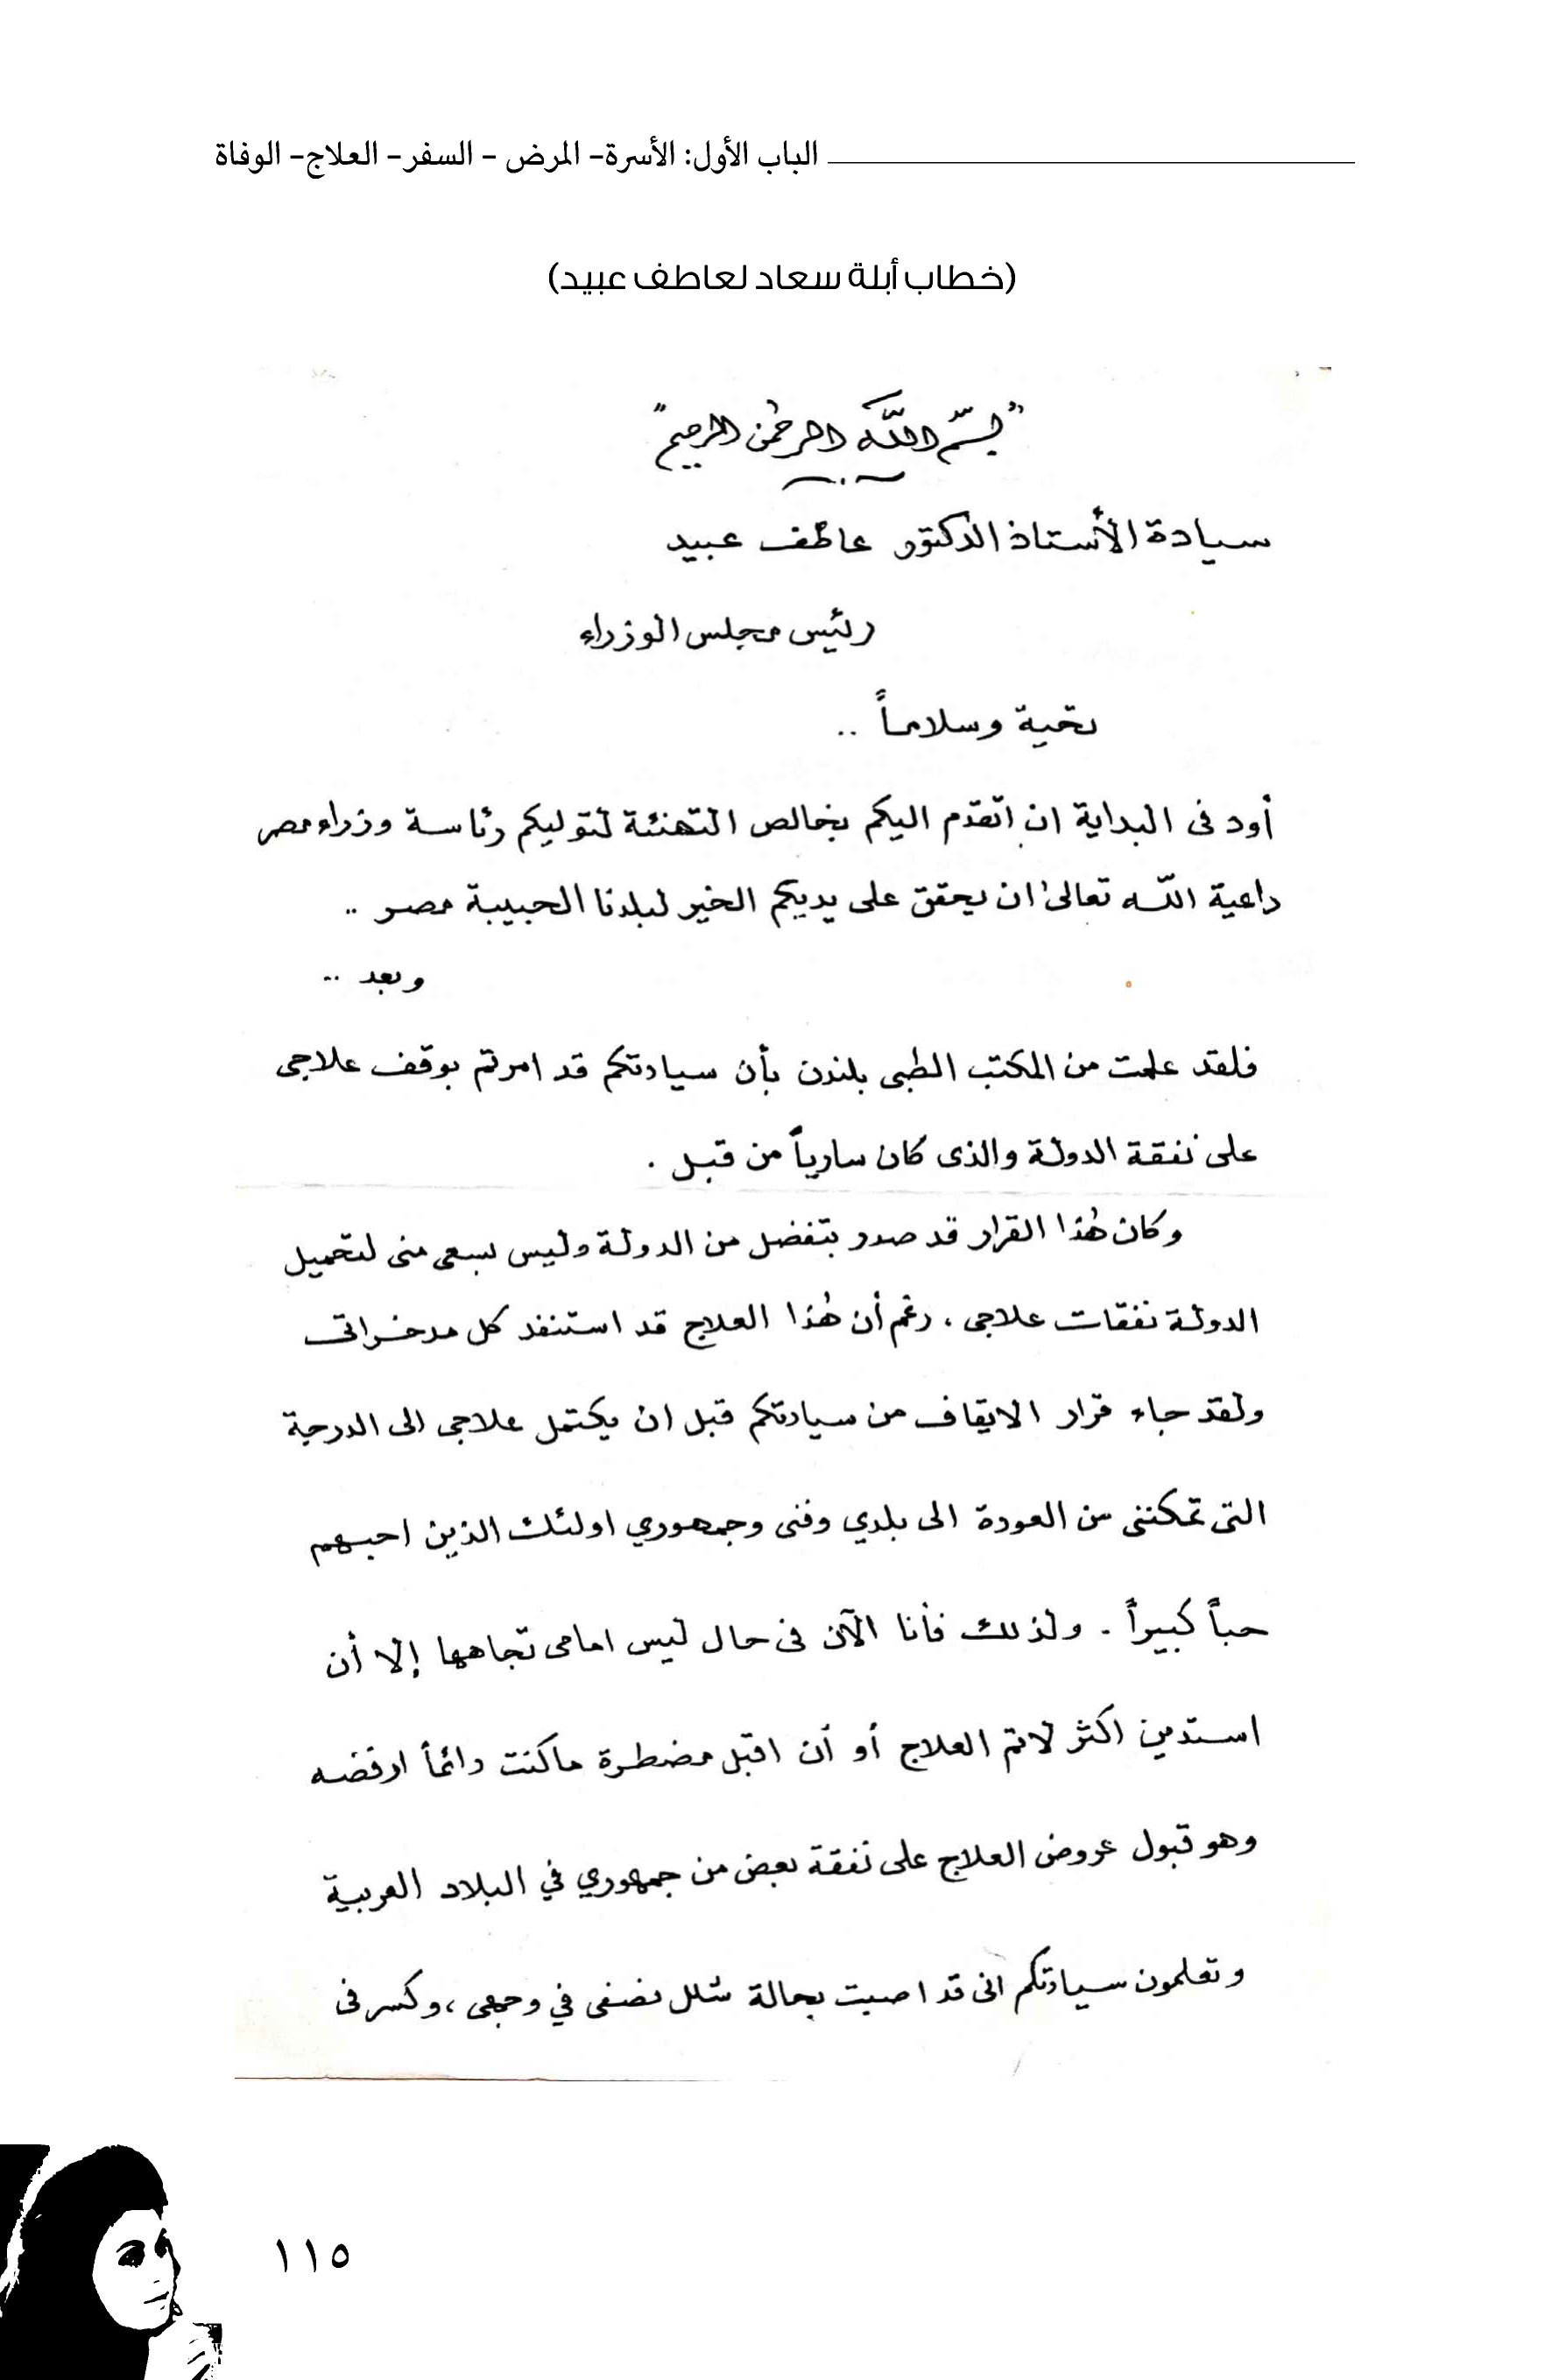 الباب الأول: الأسرة- المرض - السفر- العلاج- الوفاة
(خطاب أبلة سعاد لعاطف عبيد)
"بسم الله الرحمن الرحيم"
سيادة الأستاذ الدكتور عاطف عبيد
رئيس مجلس الوزراء
تحية وسلاماً ..
أود فى البداية ان اتقدم اليكم بخالص التهنئة لتوليكم رئاسة وزراء مصر
داعية الله تعالى ان يحقق على يديكم الخير لبلدنا الحبيبة مصر ..
وبعد ..
فلقد علمت من المكتب الطبى بلندن بأن سيادتكم قد امرتم بوقف علاجى
على نفقة الدولة والذى كان سارياً من قبل .
وكان هٰذا القرار قد صدر بتفضل من الدولة وليس بسعى منى لتحميل
الدولة نفقات علاجى ، رغم أن هٰذا العلاج قد استنفد كل مدخراتى
ولقد جاء قرار الايقاف من سيادتكم قبل ان يكتمل علاجى الى الدرجة
التى تمكننى من العودة الى بلدي وفنى وجمهوري اولئك الذين احبهم
حباً كبيراً . ولذلك فأنا الآن فى حال ليس امامى تجاهها إلا أن
استدين اكثر لاتم العلاج أو أن اقبل مضطرة ماكنت دائماً ارفضه
وهو قبول عروض العلاج على نفقة بعض من جمهوري في البلاد العربية
وتعلمون سيادتكم انى قد اصبت بحالة شلل نصفى في وجهى ، وكسر فى
١١٥